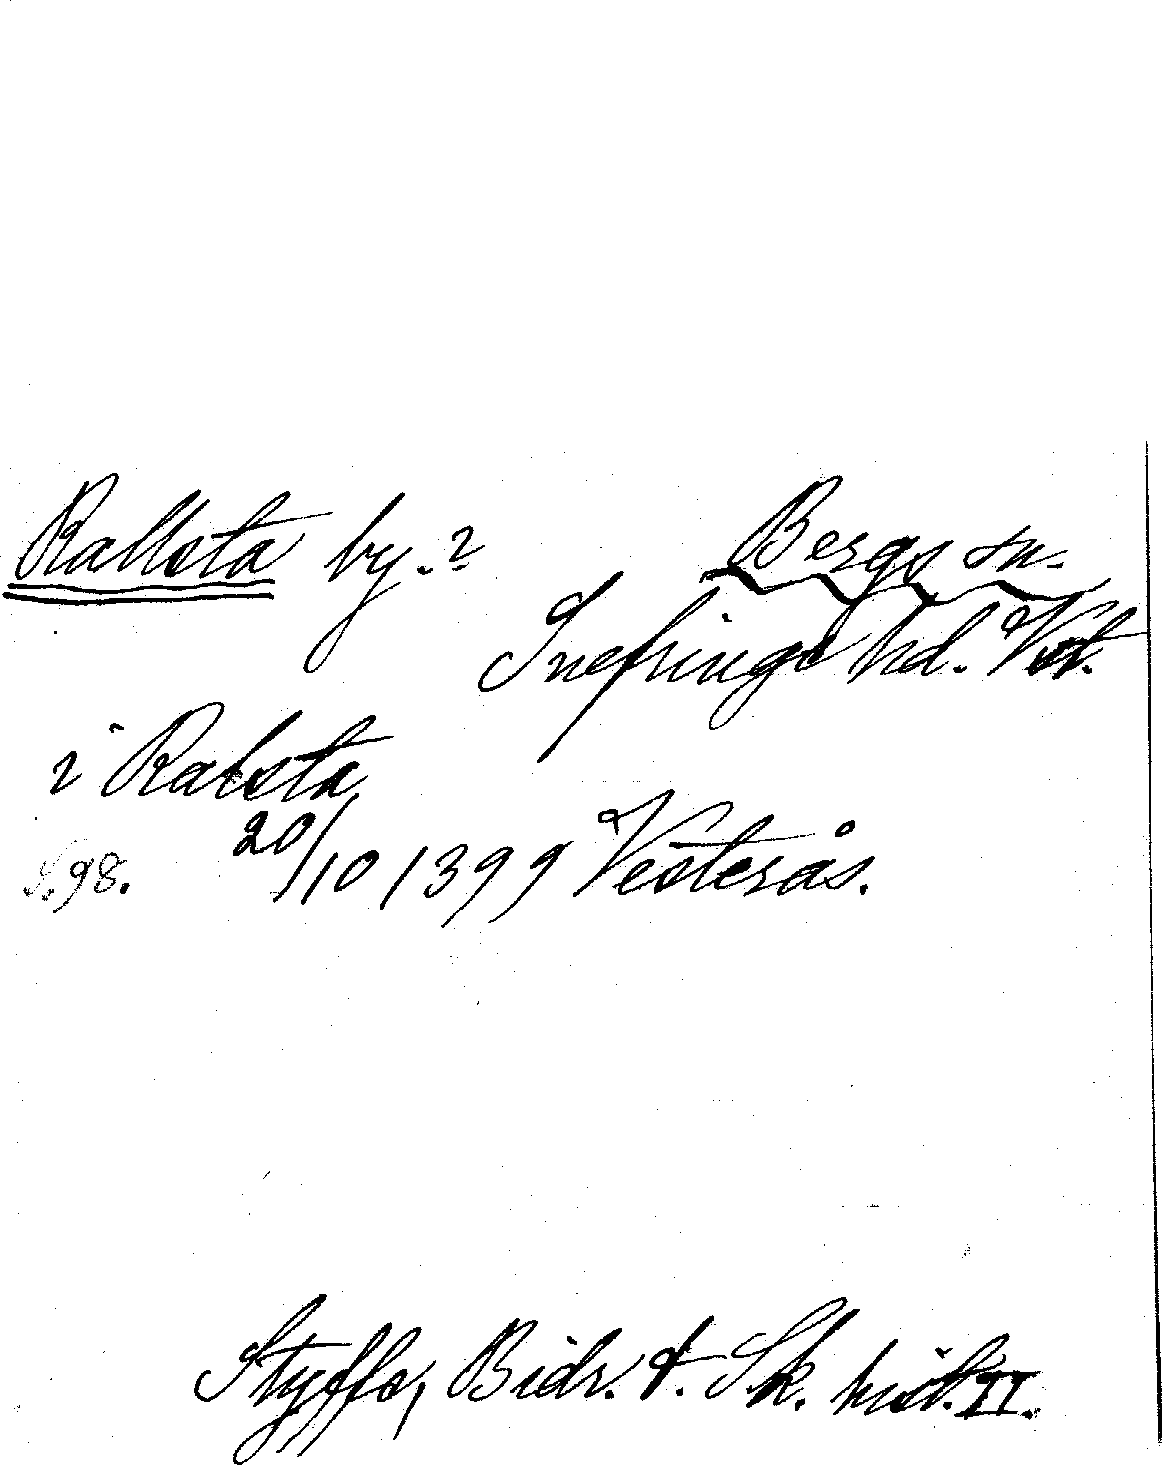 Rallsta by.? Bergs sn.
Snefringe hd. Vstm.
i Ralsta
s. 98. 20/10 1399 Vesterås.
Styffe, Bidr. t. Sk. hist. II.